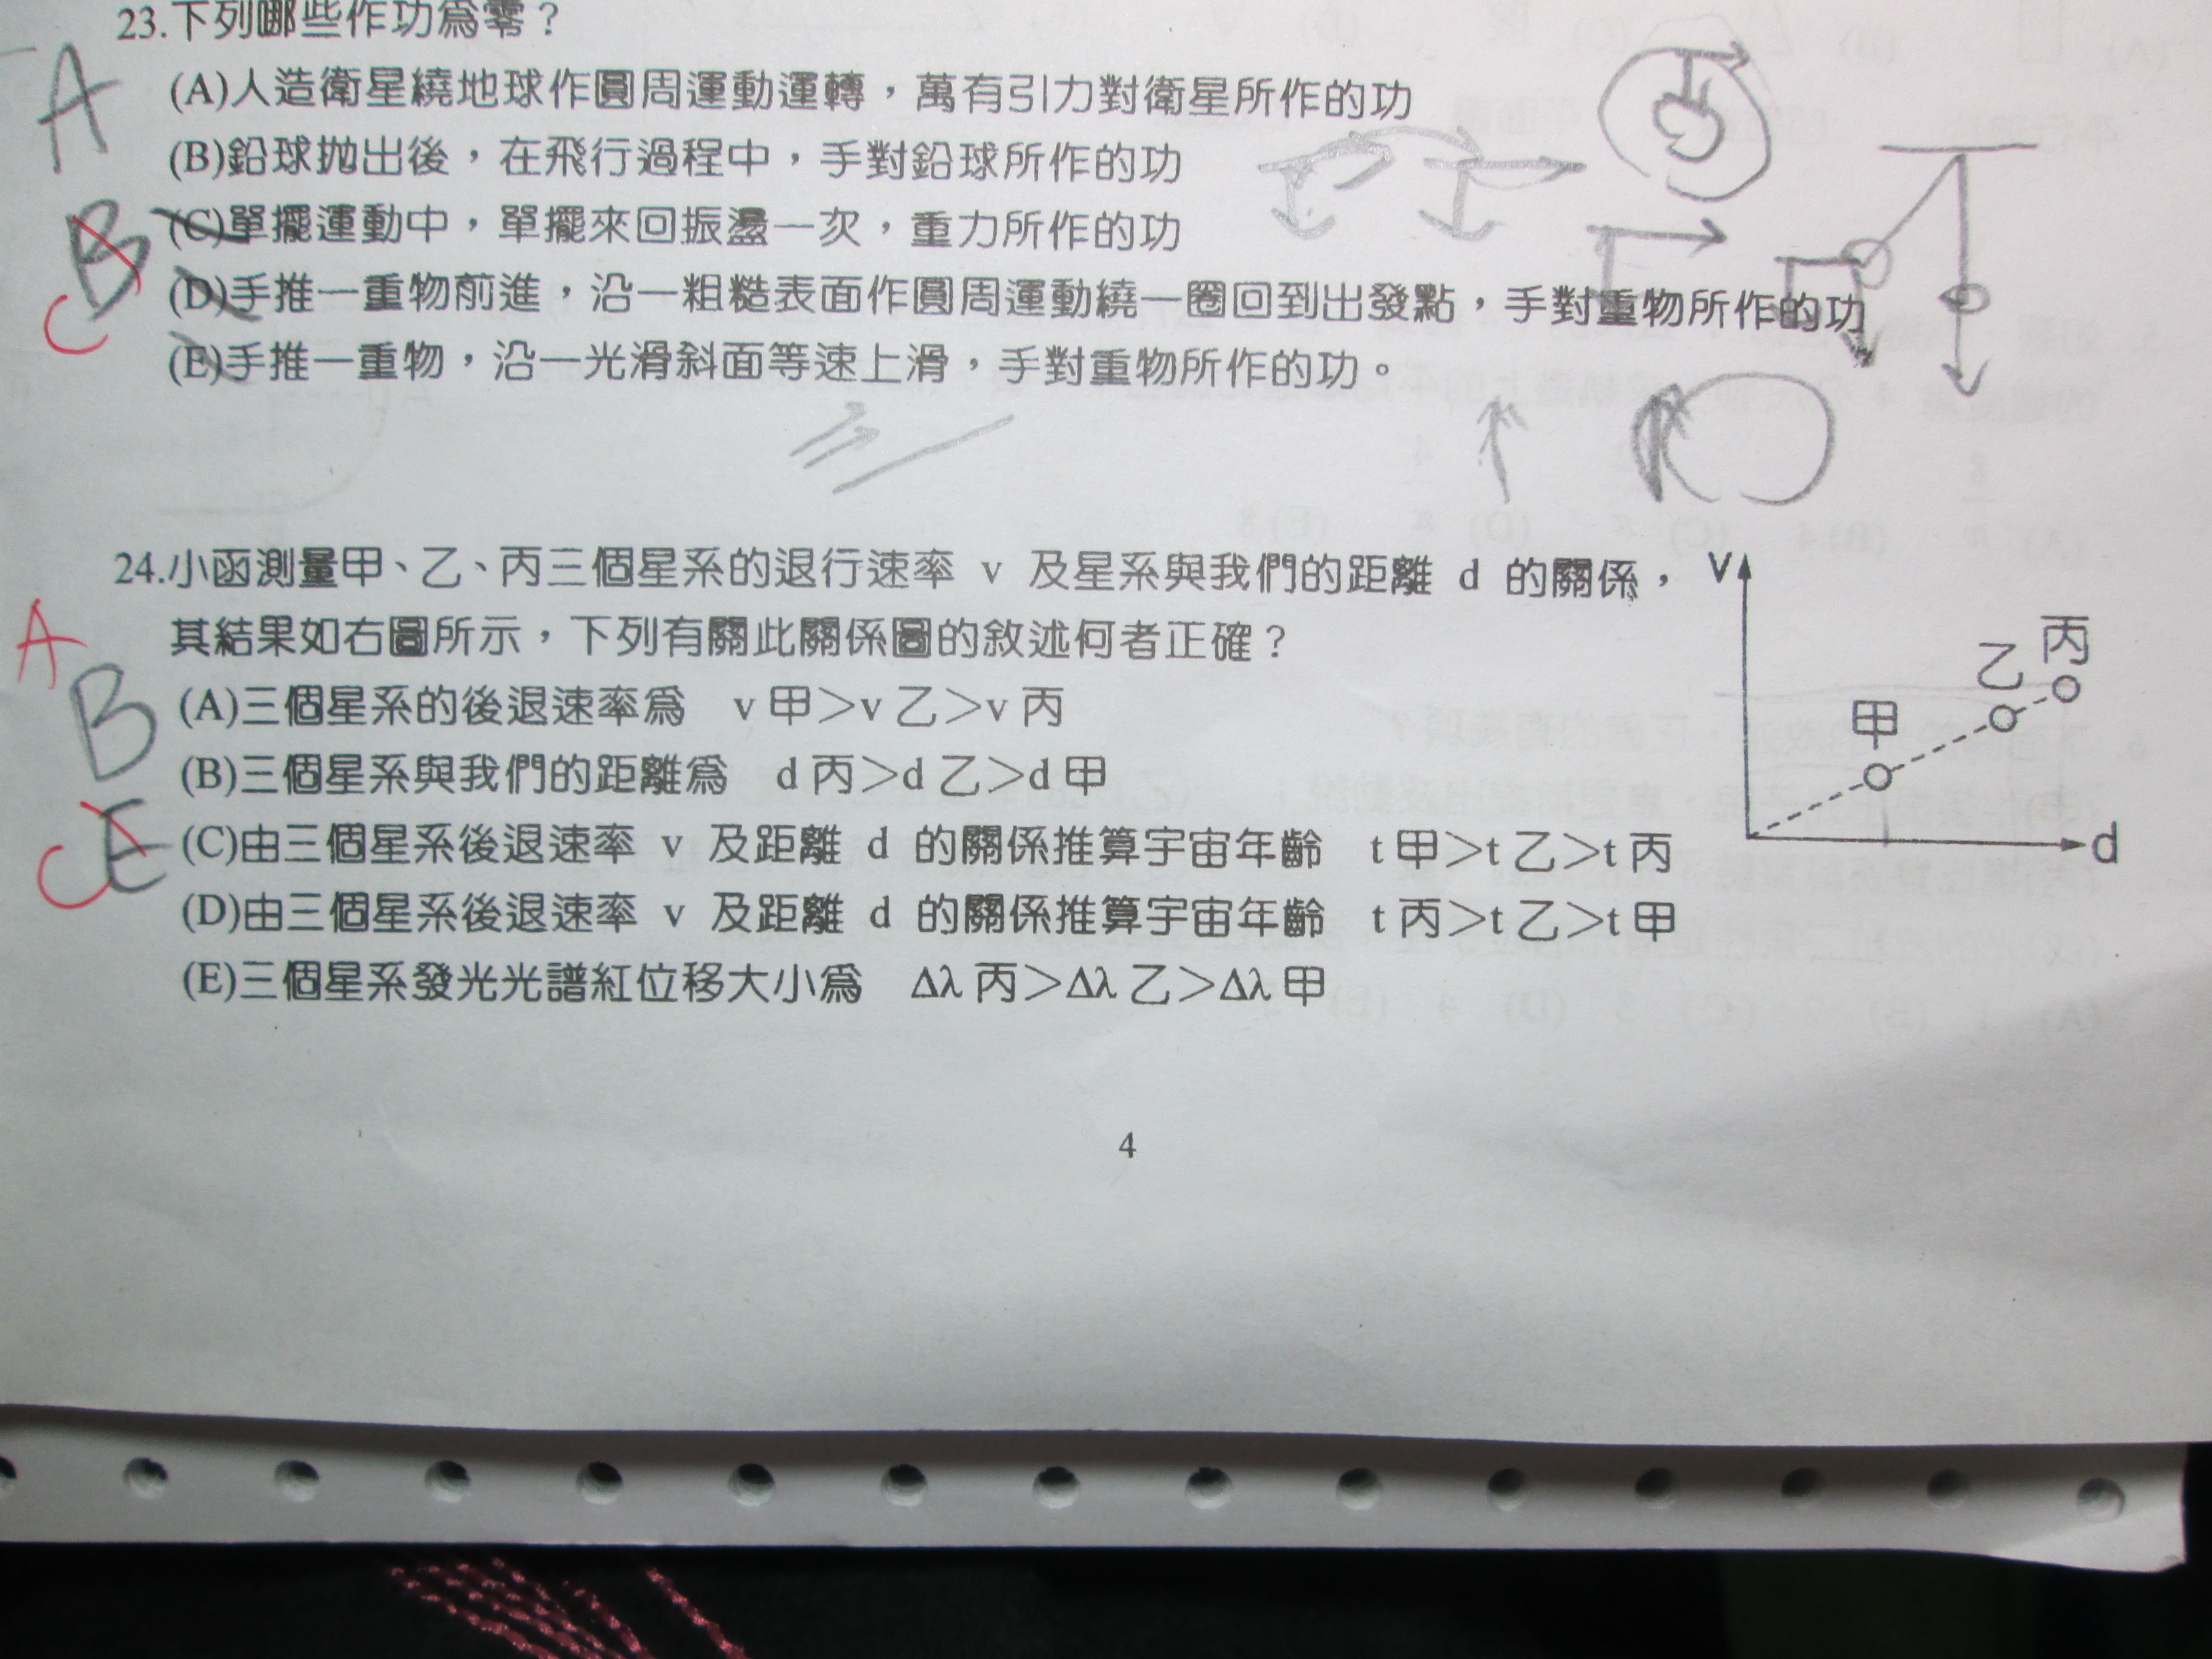 23.下列哪些作功為零？
(A)人造衛星繞地球作圓周運動運轉，萬有引力對衛星所作的功
A
(B)鉛球拋出後，在飛行過程中，手對鉛球所作的功
(C)單擺運動中，單擺來回振盪一次，重力所作的功
B
(D)手推一重物前進，沿一粗糙表面作圓周運動繞一圈回到出發點，手對重物所作的功
C
(E)手推一重物，沿一光滑斜面等速上滑，手對重物所作的功。
24.小函測量甲、乙、丙三個星系的退行速率 v 及星系與我們的距離 d 的關係，
其結果如右圖所示，下列有關此關係圖的敘述何者正確？
A
(A)三個星系的後退速率為 v 甲＞v 乙＞v 丙
B
(B)三個星系與我們的距離為 d 丙＞d 乙＞d 甲
(C)由三個星系後退速率 v 及距離 d 的關係推算宇宙年齡 t 甲＞t 乙＞t 丙
C E
(D)由三個星系後退速率 v 及距離 d 的關係推算宇宙年齡 t 丙＞t 乙＞t 甲
(E)三個星系發光光譜紅位移大小為 Δλ 丙＞Δλ 乙＞Δλ 甲
v
丙
乙
甲
d
4